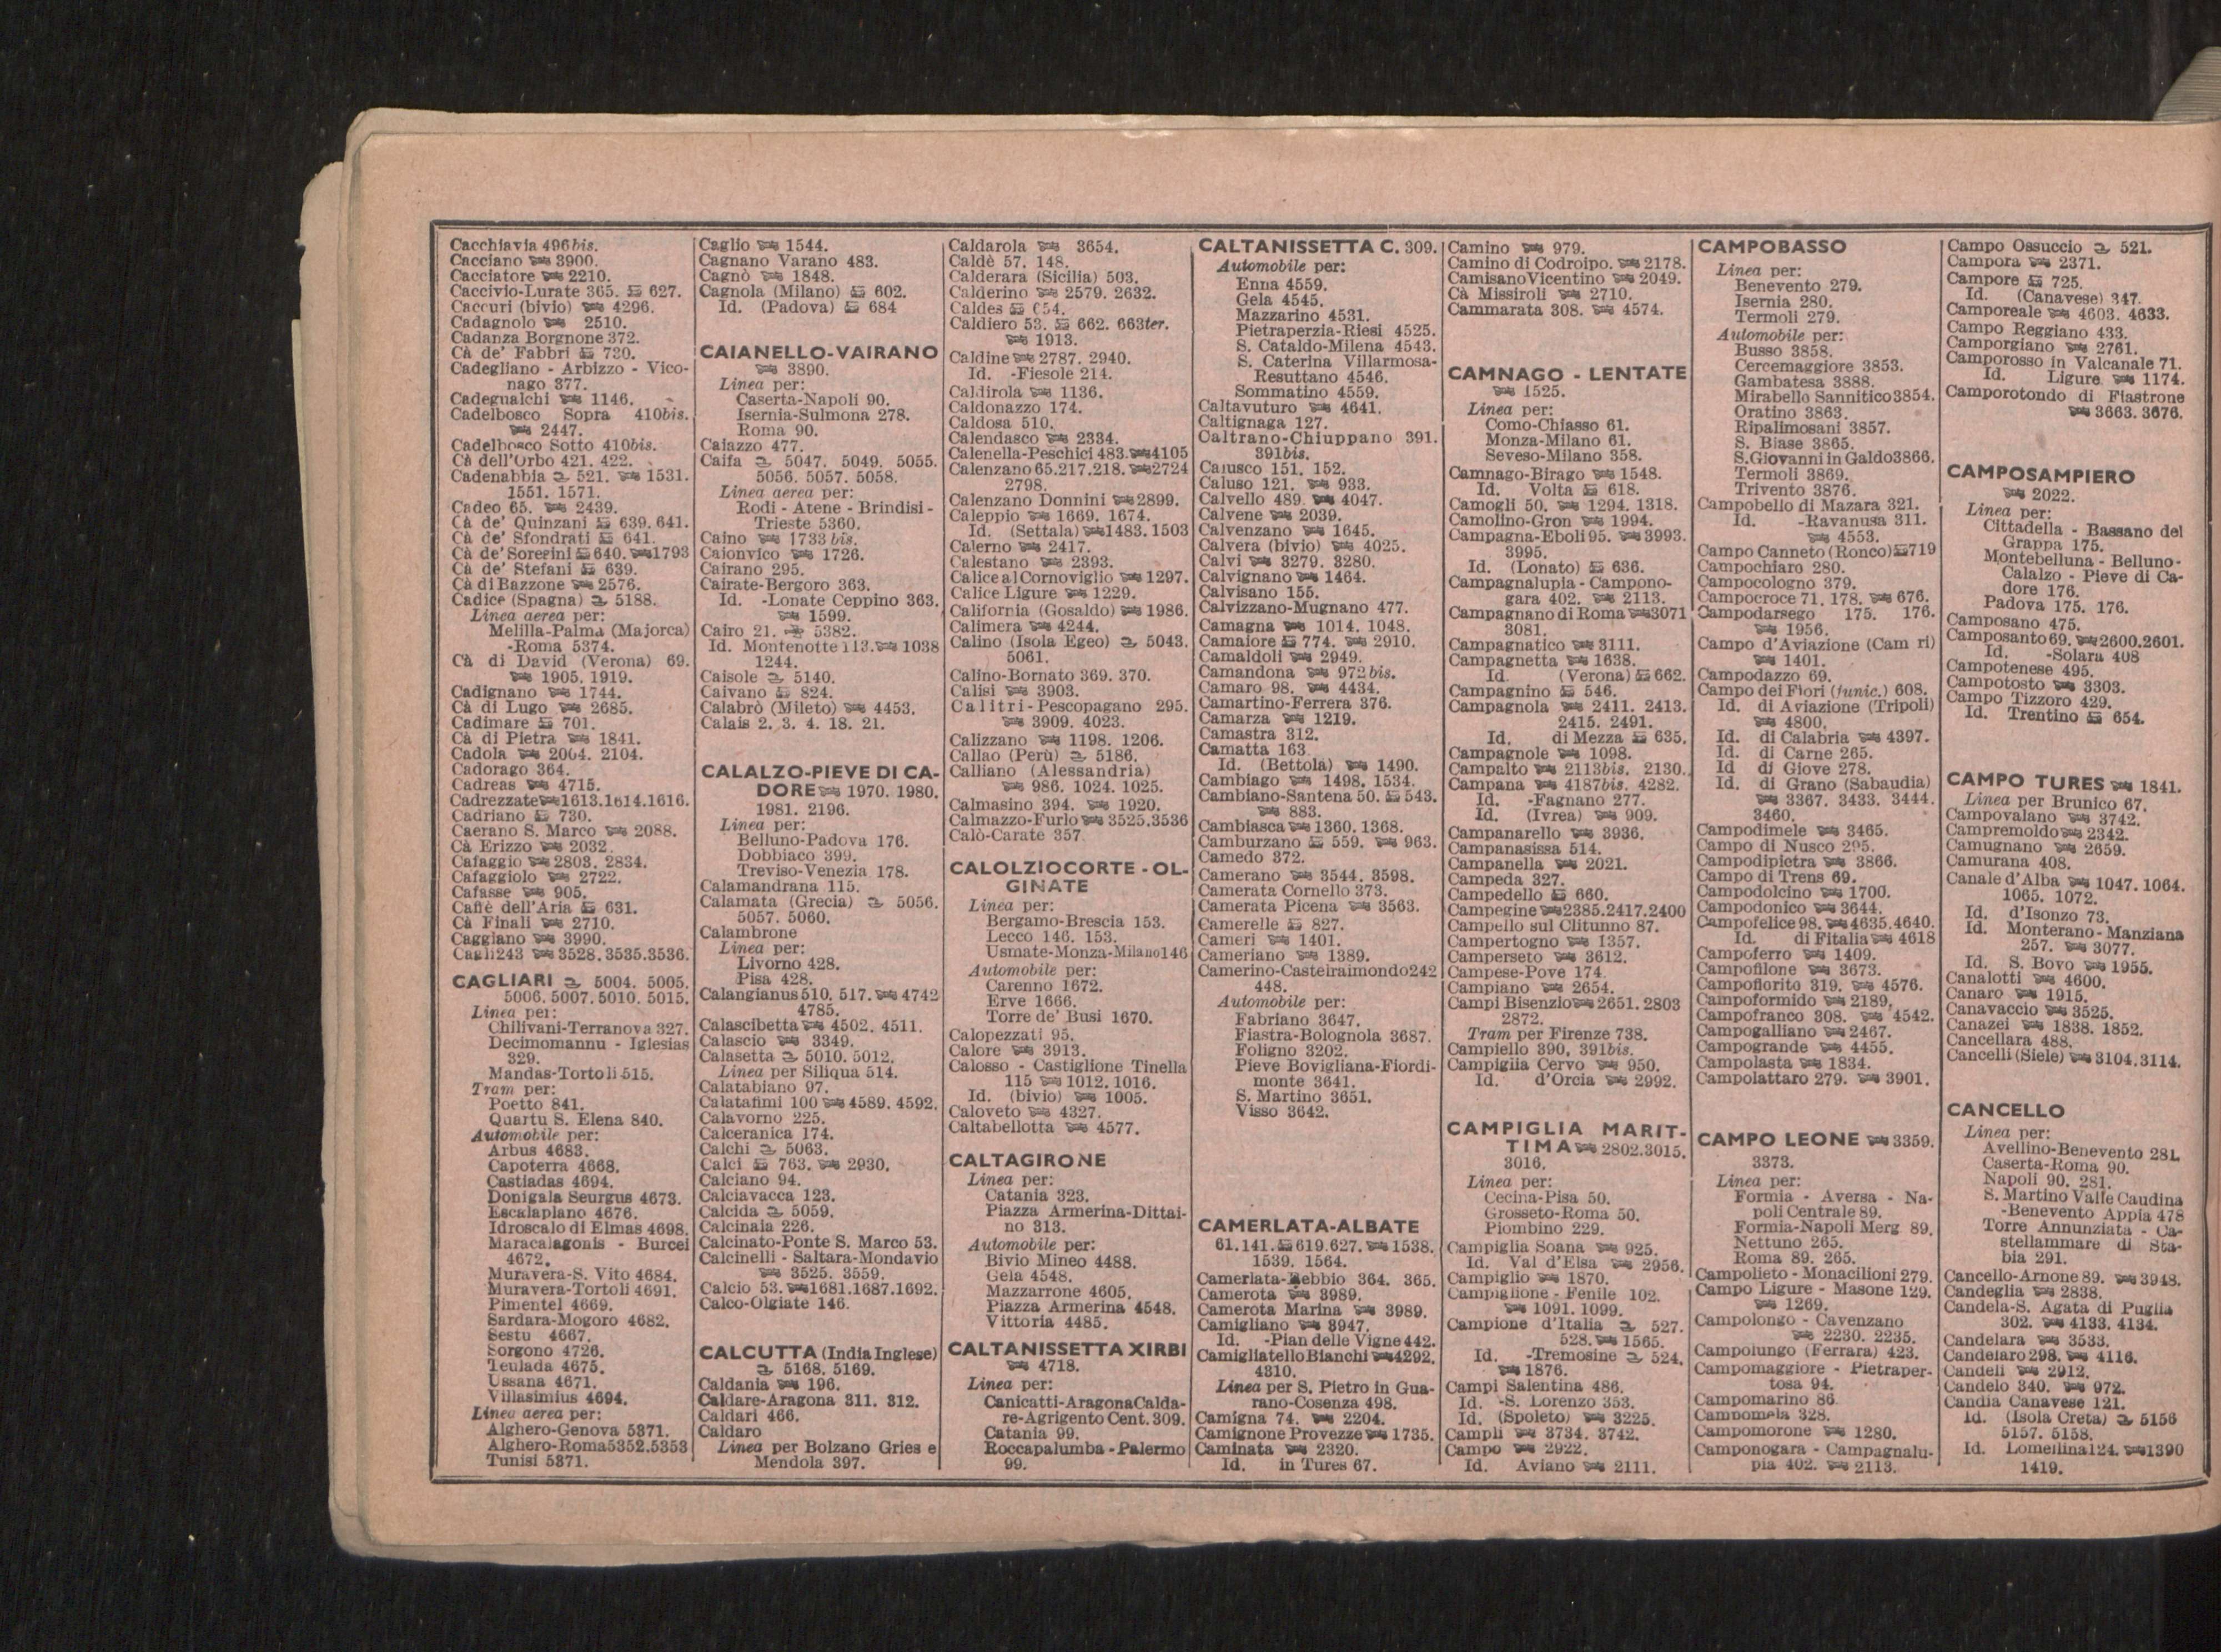 Cacchiavia 496bis.
Cacciano 3900.
Cacciatore 2210.
Caccivio-Lurate 365. 627.
Caccuri (bivio) 4296.
Cadagnolo 2510.
Cadanza Borgnone 372.
Cà de' Fabbri 730.
Cadegliano - Arbizzo - Vico-
nago 377.
Cadegualchi 1146.
Cadelbosco Sopra 410bis.
2447.
Cadelbosco Sotto 410bis.
Cà dell'Orbo 421. 422.
Cadenabbia 521. 1531.
1551. 1571.
Cadeo 65. 2439.
Cà de' Quinzani 639. 641.
Cà de' Sfondrati 641.
Cà de' Soresini 640. 1793
Cà de' Stefani 639.
Cà di Bazzone 2576.
Cadice (Spagna) 5188.
Linea aerea per:
Melilla-Palma (Majorca)
-Roma 5374.
Cà di David (Verona) 69.
1905. 1919.
Cadignano 1744.
Cà di Lugo 2685.
Cadimare 701.
Cà di Pietra 1841.
Cadola 2004. 2104.
Cadorago 364.
Cadreas 4715.
Cadrezzate 1613.1614.1616.
Cadriano 730.
Caerano S. Marco 2088.
Cà Erizzo 2032
Cafaggio 2803. 2834.
Cafaggiolo 2722.
Cafasse 905.
Caffè dell'Aria 631.
Cà Finali 2710.
Caggiano 3990.
Cagli 243 3528.3535.3536.
CAGLIARI 5004. 5005.
5006. 5007. 5010. 5015.
Linea per:
Chilivani-Terranova 327.
Decimomannu - Iglesias
329.
Mandas-Tortoli 515.
Tram per:
Poetto 841.
Quartu S. Elena 840.
Automobile per:
Arbus 4683.
Capoterra 4668.
Castiadas 4694.
Donigala Seurgus 4673.
Escalaplano 4676.
Idroscalo di Elmas 4698.
Maracalagonis - Burcei
4672.
Muravera-S. Vito 4684.
Muravera-Tortoli 4691.
Pimentel 4669.
Sardara-Mogoro 4682.
Sestu 4667.
Sorgono 4726.
Teulada 4675.
Ussana 4671.
Villasimius 4694.
Linea aerea per:
Alghero-Genova 5371.
Alghero-Roma 5352.5353
Tunisi 5371.
Caglio 1544.
Cagnano Varano 483.
Cagnò 1848.
Cagnola (Milano) 602.
Id. (Padova) 684
CAIANELLO-VAIRANO
3890.
Linea per:
Caserta-Napoli 90.
Isernia-Sulmona 278.
Roma 90.
Caiazzo 477.
Caifa 5047. 5049. 5055.
5056. 5057. 5058.
Linea aerea per:
Rodi - Atene - Brindisi -
Trieste 5360.
Caino 1733 bis.
Caionvico 1726.
Cairano 295.
Cairate-Bergoro 363.
Id. -Lonate Ceppino 363.
1599.
Cairo 21. 5382.
Id. Montenotte 113. 1038
1244.
Caisole 5140.
Caivano 824.
Calabrò (Mileto) 4453.
Calais 2. 3. 4. 18. 21.
CALALZO-PIEVE DI CA-
DORE 1970. 1980.
1981. 2196.
Linea per:
Belluno-Padova 176.
Dobbiaco 399.
Treviso-Venezia 178.
Calamandrana 115.
Calamata (Grecia) 5056.
5057. 5060.
Calambrone
Linea per:
Livorno 428.
Pisa 428.
Calangianus 510. 517. 4742
4785.
Calascibetta 4502. 4511.
Calascio 3349.
Calasetta 5010. 5012.
Linea per Siliqua 514.
Calatabiano 97.
Calatafimi 100 4589. 4592.
Calavorno 225.
Calceranica 174.
Calchi 5063.
Calci 763. 2930.
Calciano 94.
Calciavacca 123.
Calcida 5059.
Calcinaia 226.
Calcinato-Ponte S. Marco 53.
Calcinelli - Saltara-Mondavio
3525. 3559.
Calcio 53. 1681.1687.1692.
Calco-Olgiate 146.
CALCUTTA (India Inglese)
5168. 5169.
Caldania 196.
Caldare-Aragona 311. 312.
Caldari 466.
Caldaro
Linea per Bolzano Gries e
Mendola 397.
Caldarola 3654.
Caldè 57. 148.
Calderara (Sicilia) 503.
Calderino 2579. 2632.
Caldes 654.
Caldiero 53. 662. 663ter.
1913.
Caldine 2787. 2940.
Id. -Fiesole 214.
Caldirola 1136.
Caldonazzo 174.
Caldosa 510.
Calendasco 2334.
Calenella-Peschici 483. 4105
Calenzano 65.217.218. 2724
2798.
Calenzano Donnini 2899.
Caleppio 1669. 1674.
Id. (Settala) 1483. 1503
Calerno 2417.
Calestano 2393.
Calice al Cornoviglio 1297.
Calice Ligure 1229.
California (Gosaldo) 1986.
Calimera 4244.
Calino (Isola Egeo) 5043.
5061.
Calino-Bornato 369. 370.
Calisi 3903.
Calitri-Pescopagano 295.
3909. 4023.
Calizzano 1198. 1206.
Callao (Perù) 5186.
Calliano (Alessandria)
986. 1024. 1025.
Calmasino 394. 1920.
Calmazzo-Furlo 3525.3536
Calò-Carate 357
CALOLZIOCORTE - OL-
GINATE
Linea per:
Bergamo-Brescia 153.
Lecco 146. 153.
Usmate-Monza-Milano 146
Automobile per:
Carenno 1672.
Erve 1666.
Torre de' Busi 1670.
Calopezzati 95.
Calore 3913.
Calosso - Castiglione Tinella
115 1012. 1016.
Id. (bivio) 1005.
Caloveto 4327.
Caltabellotta 4577.
CALTAGIRONE
Linea per:
Catania 323.
Piazza Armerina-Dittai-
no 313.
Automobile per:
Bivio Mineo 4488.
Gela 4548.
Mazzarrone 4605.
Piazza Armerina 4548.
Vittoria 4485.
CALTANISSETTA XIRBI
4718.
Linea per:
Canicatti-AragonaCalda-
re-Agrigento Cent. 309.
Catania 99.
Roccapalumba - Palermo
99.
CALTANISSETTA C. 309.
Automobile per:
Enna 4559.
Gela 4545.
Mazzarino 4531.
Pietraperzia-Riesi 4525.
S. Cataldo-Milena 4543.
S. Caterina Villarmosa-
Resuttano 4546.
Sommatino 4559.
Caltavuturo 4641.
Caltignaga 127.
Caltrano-Chiuppano 391.
391bis.
Calusco 151. 152.
Caluso 121. 933.
Calvello 489. 4047.
Calvene 2039.
Calvenzano 1645.
Calvera (bivio) 4025.
Calvi 3279. 3280.
Calvignano 1464.
Calvisano 155.
Calvizzano-Mugnano 477.
Camagna 1014. 1048.
Camaiore 774. 2910.
Camaldoli 2949.
Camandona 972bis.
Camaro 98. 4434.
Camartino-Ferrera 376.
Camarza 1219.
Camastra 312.
Camatta 163
Id. (Bettola) 1490.
Cambiago 1498. 1534.
Cambiano-Santena 50. 543.
883.
Cambiasca 1360. 1368.
Camburzano 559. 963.
Camedo 372.
Camerano 3544. 3598.
Camerata Cornello 373.
Camerata Picena 3563.
Camerelle 827.
Cameri 1401.
Cameriano 1389.
Camerino-Castelraimondo 242
448.
Automobile per:
Fabriano 3647.
Fiastra-Bolognola 3687.
Foligno 3202.
Pieve Bovigliana-Fiordi-
monte 3641.
S. Martino 3651.
Visso 3642.
CAMERLATA-ALBATE
61.141. 619.627. 1538.
1539. 1564.
Camerlata-Rebbio 364. 365.
Camerota 3989.
Camerota Marina 3989.
Camigliano 3947.
Id. -Pian delle Vigne 442.
Camigliatello Bianchi 4292.
4310.
Linea per S. Pietro in Gua-
rano-Cosenza 498.
Camigna 74. 2204.
Camignone Provezze 1735.
Caminata 2320.
Id. in Tures 67.
Camino 979.
Camino di Codroipo. 2178.
Camisano Vicentino 2049.
Cà Missiroli 2710.
Cammarata 308. 4574.
CAMNAGO - LENTATE
1525.
Linea per:
Como-Chiasso 61.
Monza-Milano 61.
Seveso-Milano 358.
Camnago-Birago 1548.
Id. Volta 618.
Camogli 50. 1294. 1318.
Camolino-Gron 1994.
Campagna-Eboli 95. 3993.
3995.
Id. (Lonato) 636.
Campagnalupia - Campono-
gara 402. 2113.
Campagnano di Roma 3071
3081.
Campagnatico 3111.
Campagnetta 1638.
Id. (Verona) 662.
Campagnino 546.
Campagnola 2411. 2413.
2415. 2491.
Id. di Mezza 635.
Campagnole 1098.
Campalto 2113bis. 2130.
Campana 4187bis. 4282.
Id. -Fagnano 277.
Id. (Ivrea) 909.
Campanarello 3936.
Campanasissa 514.
Campanella 2021.
Campeda 327.
Campedello 660.
Campegine 2385.2417.2400
Campello sul Clitunno 87.
Campertogno 1357.
Camperseto 3612.
Campese-Pove 174.
Campiano 2654.
Campi Bisenzio 2651. 2803
2872.
Tram per Firenze 738.
Campiello 390, 391bis.
Campiglia Cervo 950.
Id. d'Orcia 2992.
CAMPIGLIA MARIT-
TIMA 2802.3015.
3016.
Linea per:
Cecina-Pisa 50.
Grosseto-Roma 50.
Piombino 229.
Campiglia Soana 925.
Id. Val d'Elsa 2956.
Campiglio 1870.
Campiglione - Fenile 102.
1091. 1099.
Campione d'Italia 527.
528. 1565.
Id. -Tremosine 524.
1876.
Campi Salentina 486.
Id. -S. Lorenzo 353.
Id. (Spoleto) 3225.
Campli 3734. 3742.
Campo 2922.
Id. Aviano 2111.
CAMPOBASSO
Linea per:
Benevento 279.
Isernia 280.
Termoli 279.
Automobile per:
Busso 3858.
Cercemaggiore 3853.
Gambatesa 3888.
Mirabello Sannitico 3854.
Oratino 3863.
Ripalimosani 3857.
S. Biase 3865.
S. Giovanni in Galdo 3866.
Termoli 3869.
Trivento 3876.
Campobello di Mazara 321.
Id. -Ravanusa 311.
4553.
Campo Canneto (Ronco) 719
Campochiaro 280.
Campocologno 379.
Campocroce 71. 178. 676.
Campodarsego 175. 176.
1956.
Campo d'Aviazione (Cam ri)
1401.
Campodazzo 69.
Campo dei Fiori (funic.) 608.
Id. di Aviazione (Tripoli)
4800.
Id. di Calabria 4397.
Id. di Carne 265.
Id di Giove 278.
Id. di Grano (Sabaudia)
3367. 3433. 3444.
3460.
Campodimele 3465.
Campo di Nusco 295.
Campodipietra 3866.
Campo di Trens 69.
Campodolcino 1700.
Campodonico 3644.
Campofelice 98. 4635.4640.
Id. di Fitalia 4618
Campoferro 1409.
Campofilone 3673.
Campofiorito 319. 4576.
Campoformido 2189.
Campofranco 308. 4542.
Campogalliano 2467.
Campogrande 4455.
Campolasta 1834.
Campolattaro 279. 3901.
CAMPO LEONE 3359.
3373.
Linea per:
Formia - Aversa - Na-
poli Centrale 89.
Formia-Napoli Merg 89.
Nettuno 265.
Roma 89. 265.
Campolieto - Monacilioni 279.
Campo Ligure - Masone 129.
1269.
Campolongo - Cavenzano
2230. 2235.
Campolungo (Ferrara) 423.
Campomaggiore - Pietraper-
tosa 94.
Campomarino 86
Campomela 328.
Campomorone 1280.
Camponogara - Campagnalu-
pia 402. 2113.
Campo Ossuccio 521.
Campora 2371.
Campore 725.
Id. (Canavese) 347.
Camporeale 4603. 4633.
Campo Reggiano 433.
Camporgiano 2761.
Camporosso in Valcanale 71.
Id. Ligure 1174.
Camporotondo di Fiastrone
3663. 3676.
CAMPOSAMPIERO
2022.
Linea per:
Cittadella - Bassano del
Grappa 175.
Montebelluna - Belluno-
Calalzo - Pieve di Ca-
dore 176.
Padova 175. 176.
Camposano 475.
Camposanto 69. 2600.2601.
Id. -Solara 408
Campotenese 495.
Campotosto 3303.
Campo Tizzoro 429.
Id. Trentino 654.
CAMPO TURES 1841.
Linea per Brunico 67.
Campovalano 3742.
Campremoldo 2342.
Camugnano 2659.
Camurana 408.
Canale d'Alba 1047. 1064.
1065. 1072.
Id. d'Isonzo 73.
Id. Monterano - Manziana
257. 3077.
Id. S. Bovo 1955.
Canalotti 4600.
Canaro 1915.
Canavaccio 3525.
Canazei 1838. 1852.
Cancellara 488.
Cancelli (Siele) 3104.3114.
CANCELLO
Linea per:
Avellino-Benevento 281.
Caserta-Roma 90.
Napoli 90. 281.
S. Martino Valle Caudina
-Benevento Appia 478
Torre Annunziata - Ca-
stellammare di Sta-
bia 291.
Cancello-Arnone 89. 3948.
Candeglia 2838.
Candela-S. Agata di Puglia
302. 4133. 4134.
Candelara 3533.
Candelaro 298. 4116.
Candeli 2912.
Candelo 340. 972.
Candia Canavese 121.
Id. (Isola Creta) 5156
5157. 5158.
Id. Lomellina 124. 1390
1419.